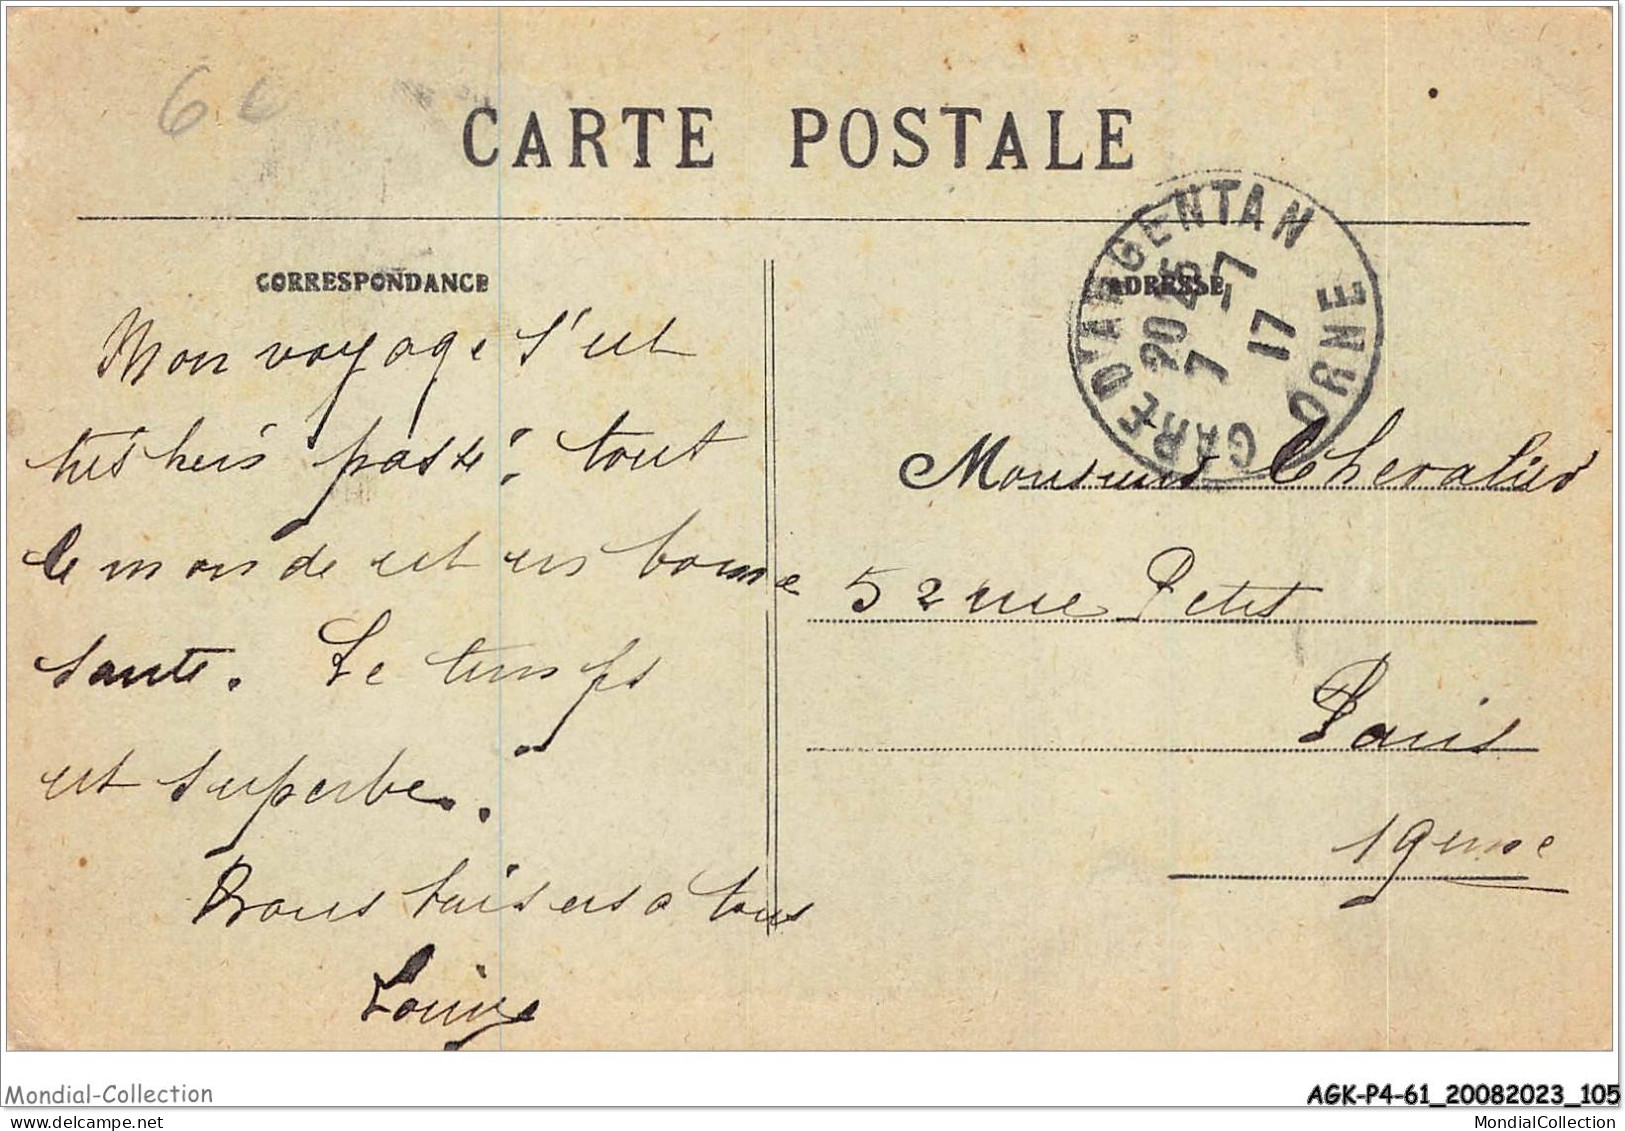 6 €
CARTE POSTALE
CORRESPONDANCE
ADRESSE
GARE D'ARGENTAN ORNE
20 45
7 -7
17
Mon voyage s'est
très bien passé, tout
le monde est en bonne
santé. Le temps
est superbe.
Bons baisers a tous
Louise
Monsieur Chevalier
52 rue Petit
Paris
19eme
Mondial-Collection
AGK-P4-61_20082023_105
MondialCollection